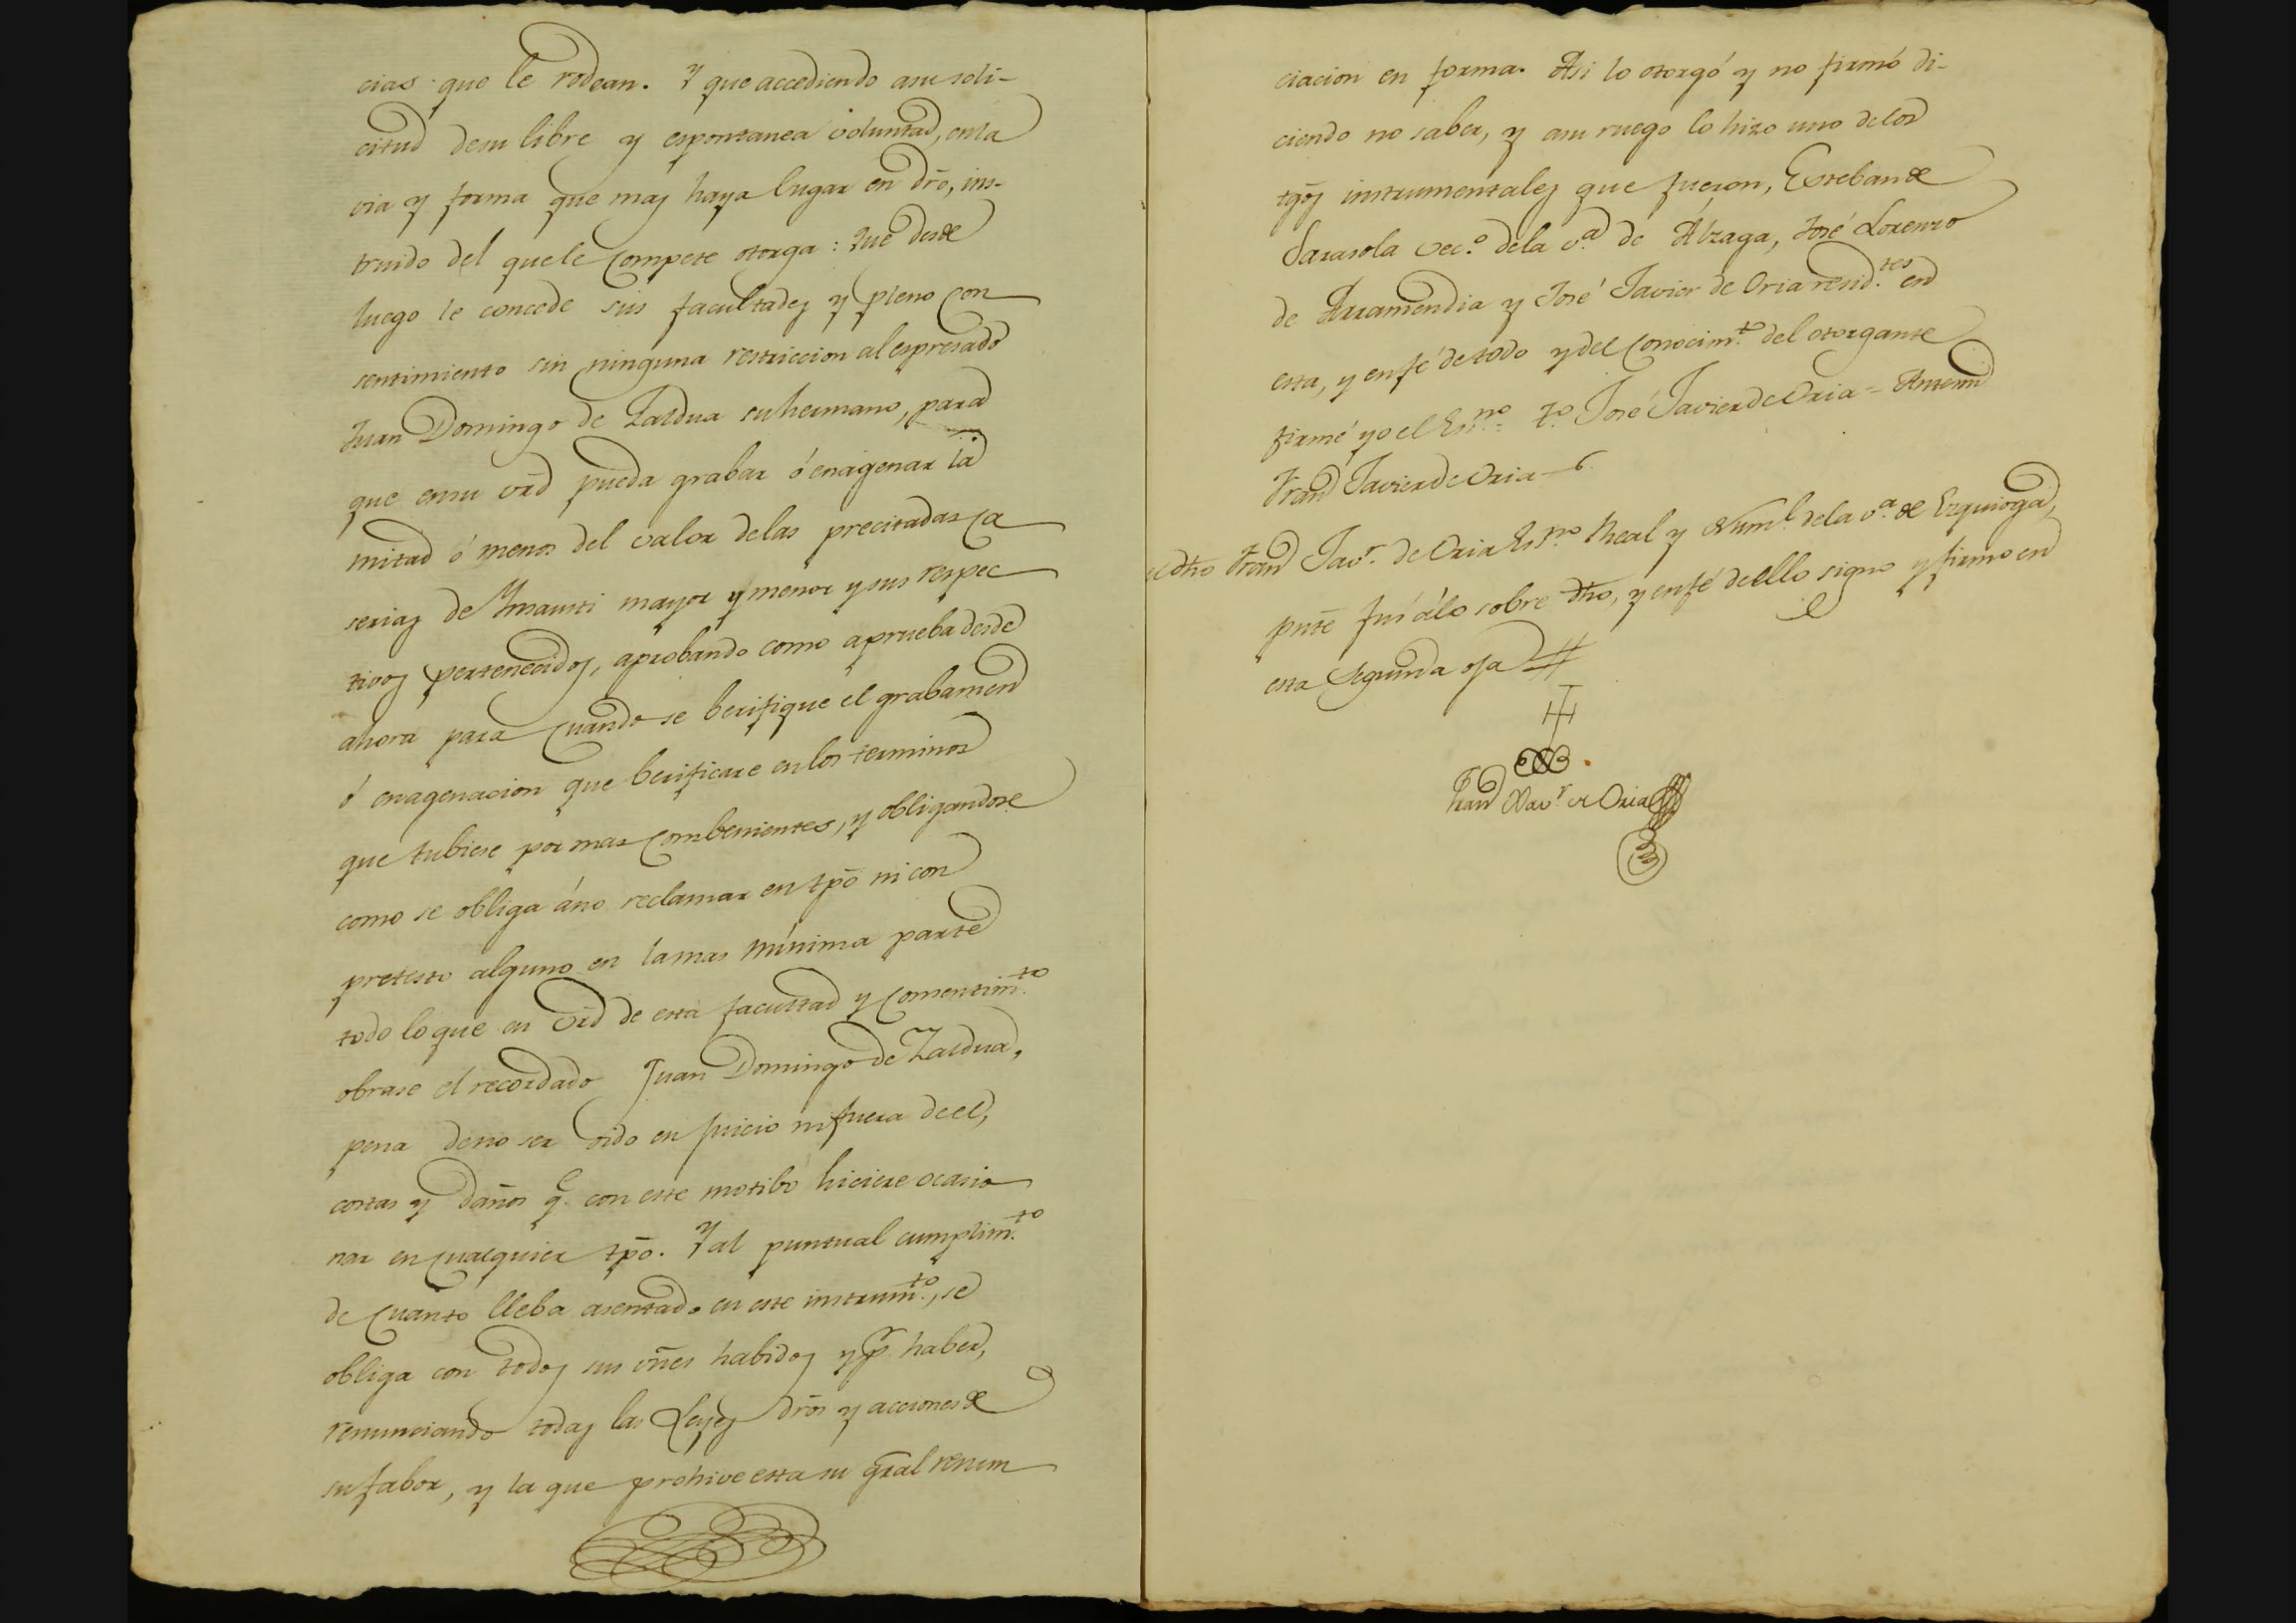 cias que le rodean. Y que accediendo asu soli-
citud desu libre y espontanea voluntad, enla
via y forma que mas haya lugar en dro, ins-
truido del quele compete otorga: Que desde
luego le concede sus facultades y pleno con
sentimiento sin ninguna restriccion al espresado
Juan Domingo de Zaldua su hermano, para
que ensu vrd pueda grabar ó enagenar la
mitad ó menos del valor delas precitadas ca
serias de mayor y menor y sus respec
tivos pertenecidos, aprobando como aprueba desde
ahora para cuando se berifique el grabamen
ó enagenacion que berificare enlos terminos
que tubiese por mas combenientes, y obligandose
como se obliga áno reclamar en tpō ni con
pretesto alguno en lamas mínima parte
todo loque en vrd de esta facultad y consentim.to
obrase el recordado Juan Domingo de Zaldua,
pena deno ser oido en juicio nifuera deel,
costas y daños q.e con este motibo hiciere ocasio
nar en cualquier tpō. Y al puntual cumplim.to
de cuanto lleba asentado en este instrum.to, se
obliga con todos sus vñes habidos y p.r haber,
renunciando todas las Leyes dros y acciones de
sufabor, y la que prohive esta su gral renun
ciacion en forma. Asi lo otorgó y no firmó di-
ciendo no saber, y asu ruego lo hizo uno delos
tgos instrumentales que fueron, Esteban de
Sarasola vec.o dela v.a de Alzaga, José Lorenzo
de Arramendia y José Javier de Oria resid.tes en
esta, y enfé detodo y del conocim.to del otorgante
firmé yo el Es.no = T.o José Javier de Oria = Antemi
Fran Javier de Oria
el dho Fran Jav.r de Oria Es.no Real y Num.l dela v.a de Ezquioga,
pnte fuí álo sobre dho, y enfé deello signo y firmo en
esta segunda oja
Fran Xav.r de Oria